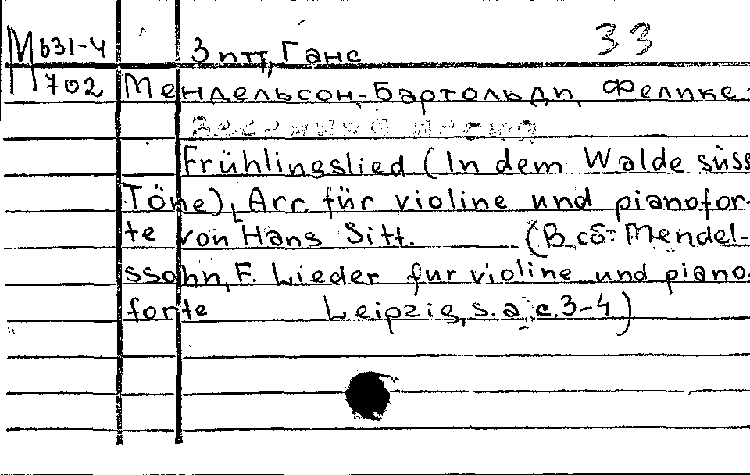 М631-4 Зитт, Ганс 33
П702 Мендельсон-Бартольди, Феликс.
Весенняя песня
Frühlingslied (In dem Walde süss
Töne), Arr. für violine und pianofor-
te von Hans Sitt. (В сб: Mendel-
ssohn, F. Lieder fur violine und piano.
forte Leipzig, s.a. c.3-4)